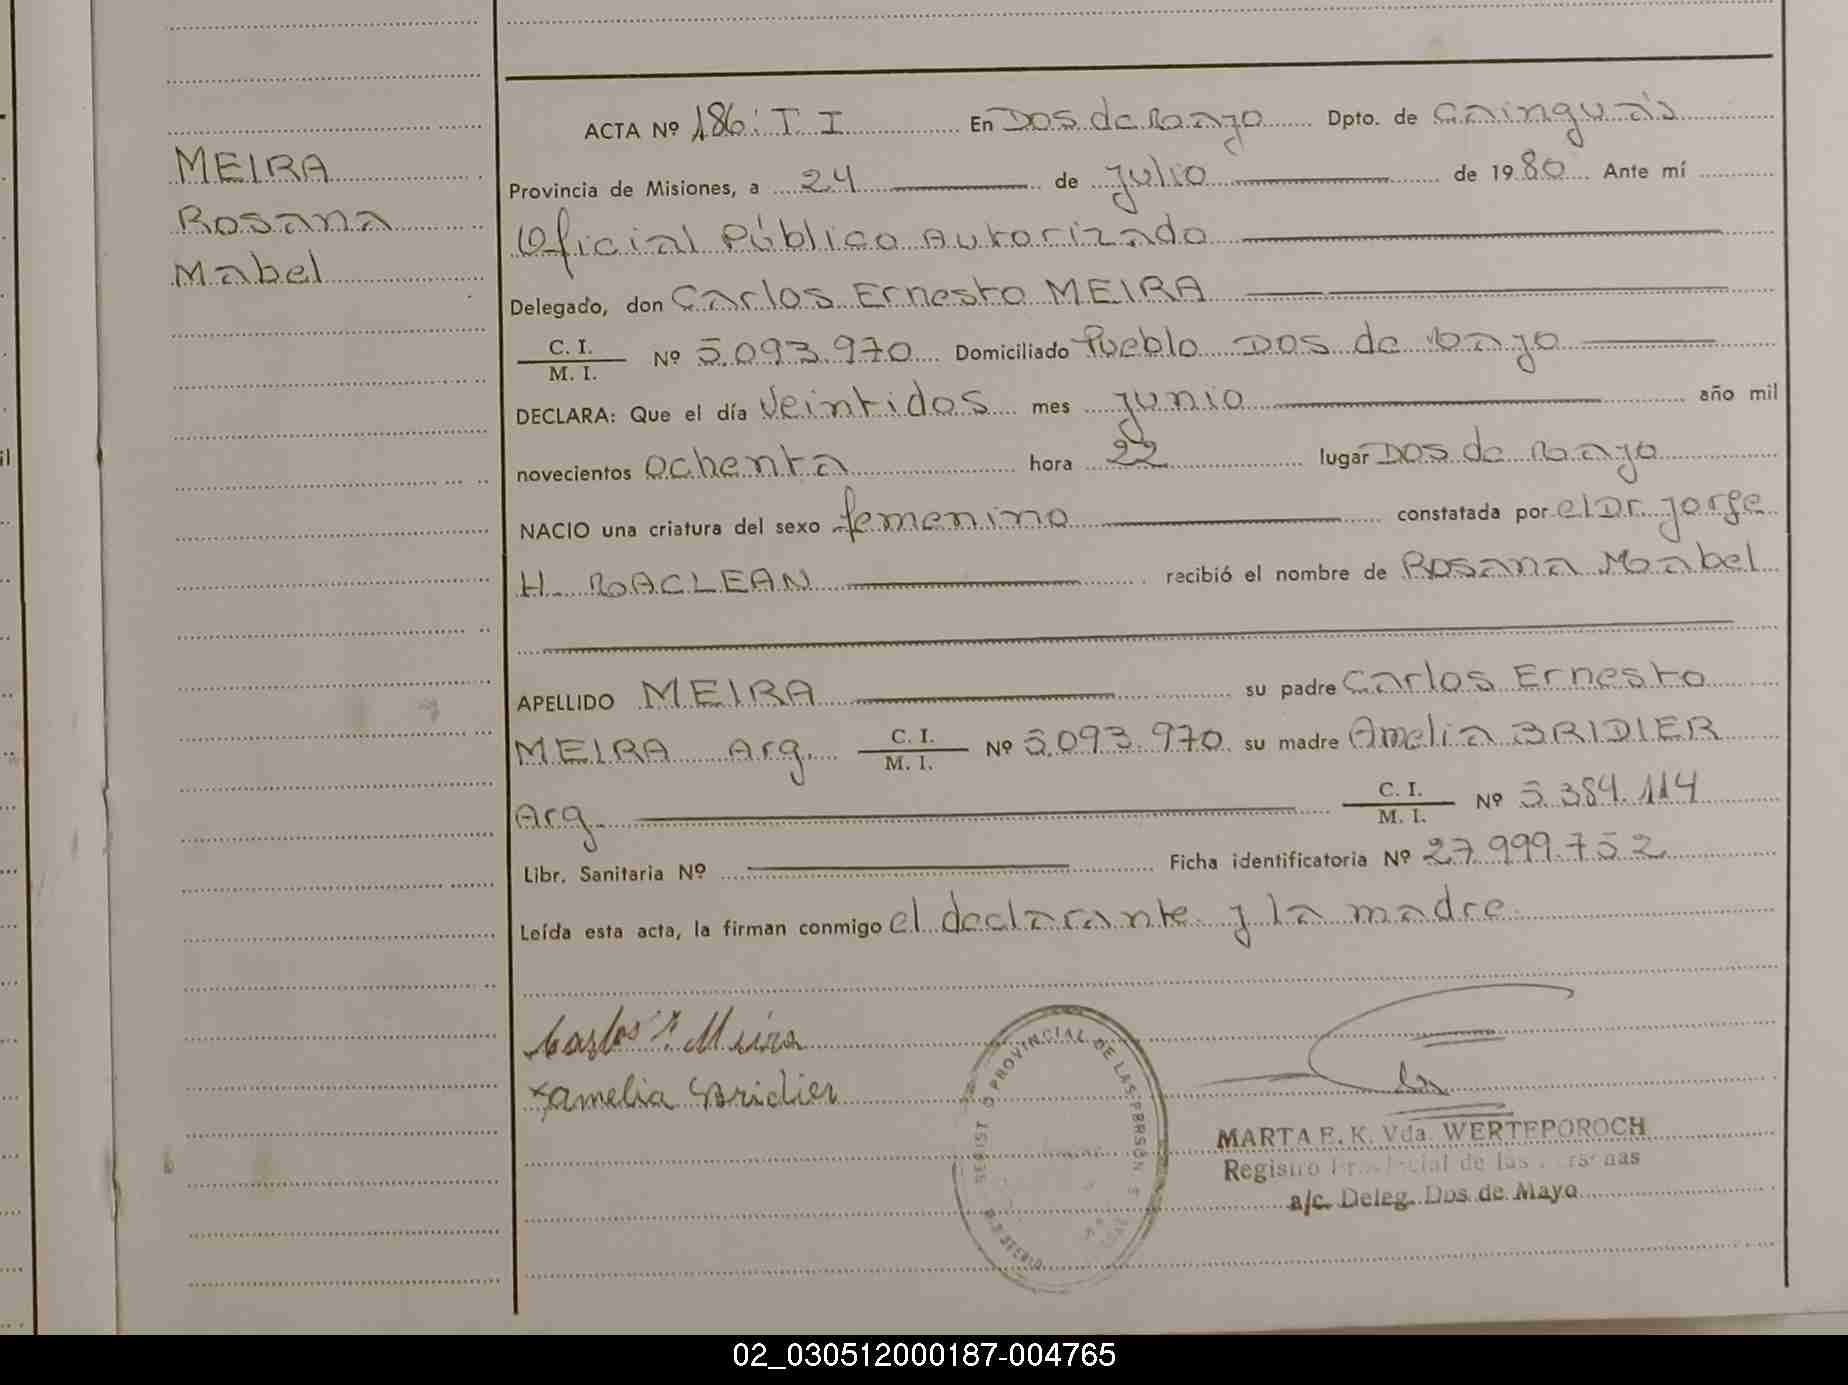 MEIRA
Rosana
Mabel
ACTA Nº 186: T I En Dos de Mayo Dpto. de Cainguás
Provincia de Misiones, a 24 de julio de 1980 Ante mí
Oficial Público Autorizado
Delegado, don Carlos Ernesto MEIRA
C. I.
M. I. Nº 5.093.970 Domiciliado Pueblo Dos de Mayo
DECLARA: Que el día Veintidos mes junio año mil
novecientos ochenta hora 22 lugar Dos de Mayo
NACIO una criatura del sexo femenino constatada por el Dr. jorge
H. MACLEAN recibió el nombre de Rosana Mabel
APELLIDO MEIRA su padre Carlos Ernesto
MEIRA Arg. C. I. M. I. Nº 5.093.970 su madre Amelia BRIDIER
Arg. C. I. M. I. Nº 5.384.114
Libr. Sanitaria Nº Ficha identificatoria Nº 27.999.752
Leída esta acta, la firman conmigo el declarante y la madre.
Carlos E. Meira
Amelia Bridier
PROVINCIAL DE LAS
MARTA E. K. Vda. WERTEPOROCH
Registro Provincial de las Personas
a/c. Deleg. Dos de Mayo
02_030512000187-004765